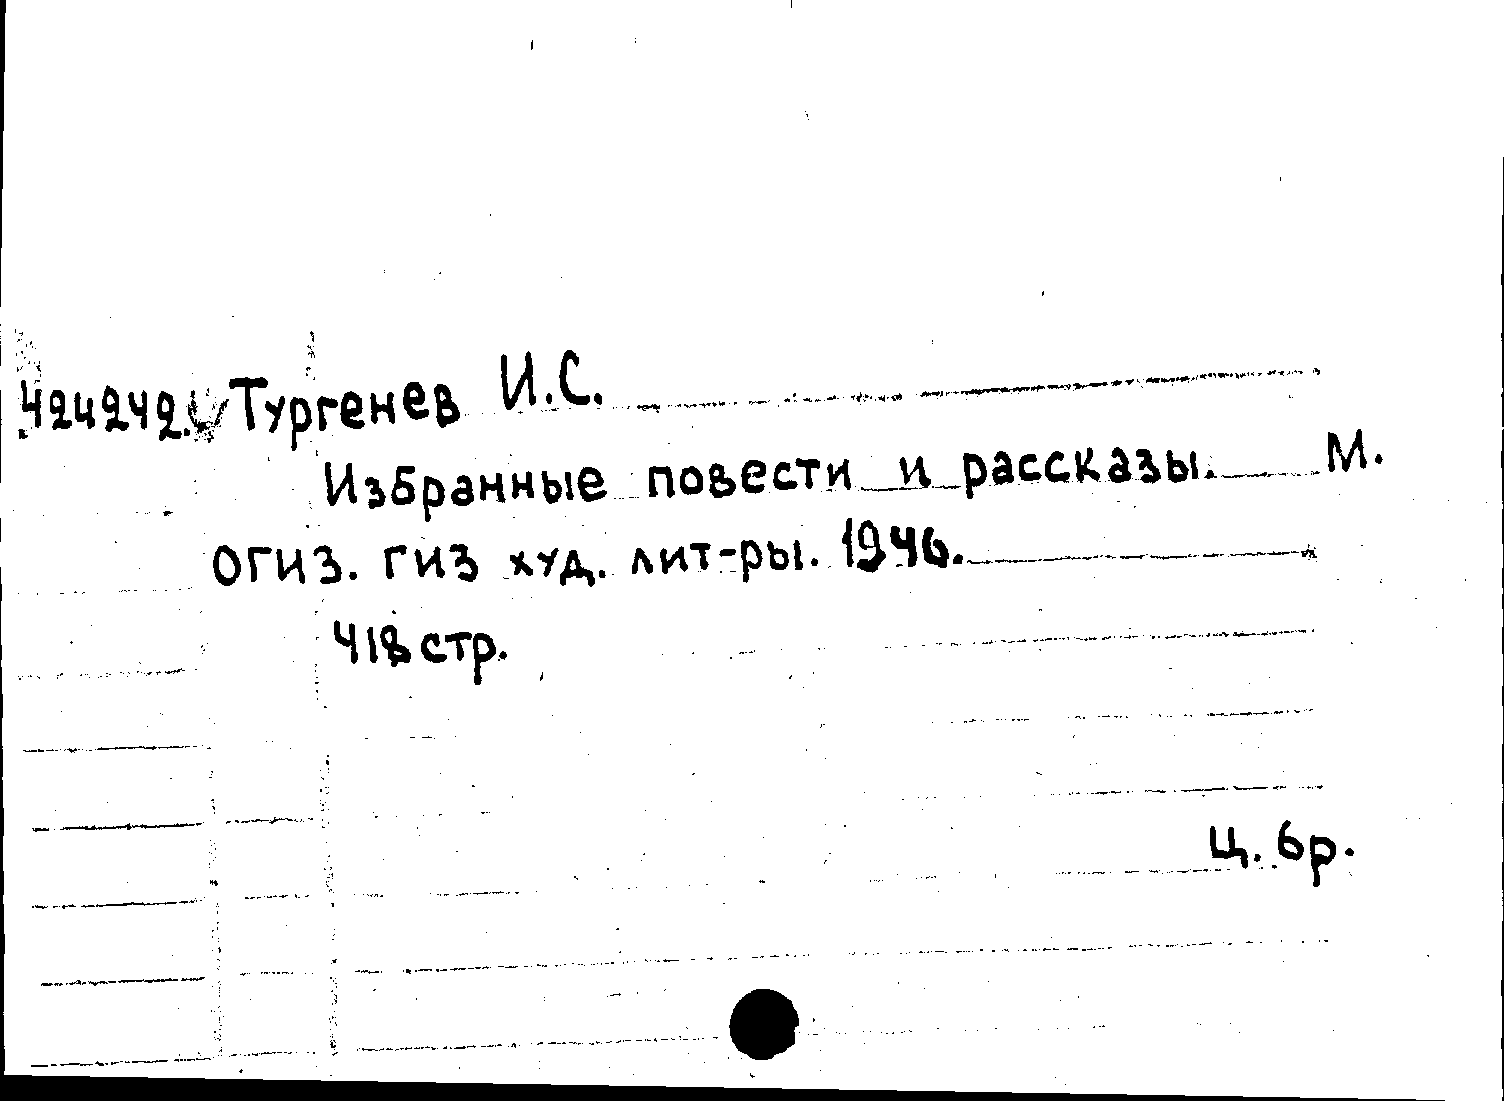 424242. Тургенев И.С.
Избранные повести и рассказы. М.
ОГИЗ. ГИЗ худ. лит-ры. 1946.
418 стр.
Ц. 6р.